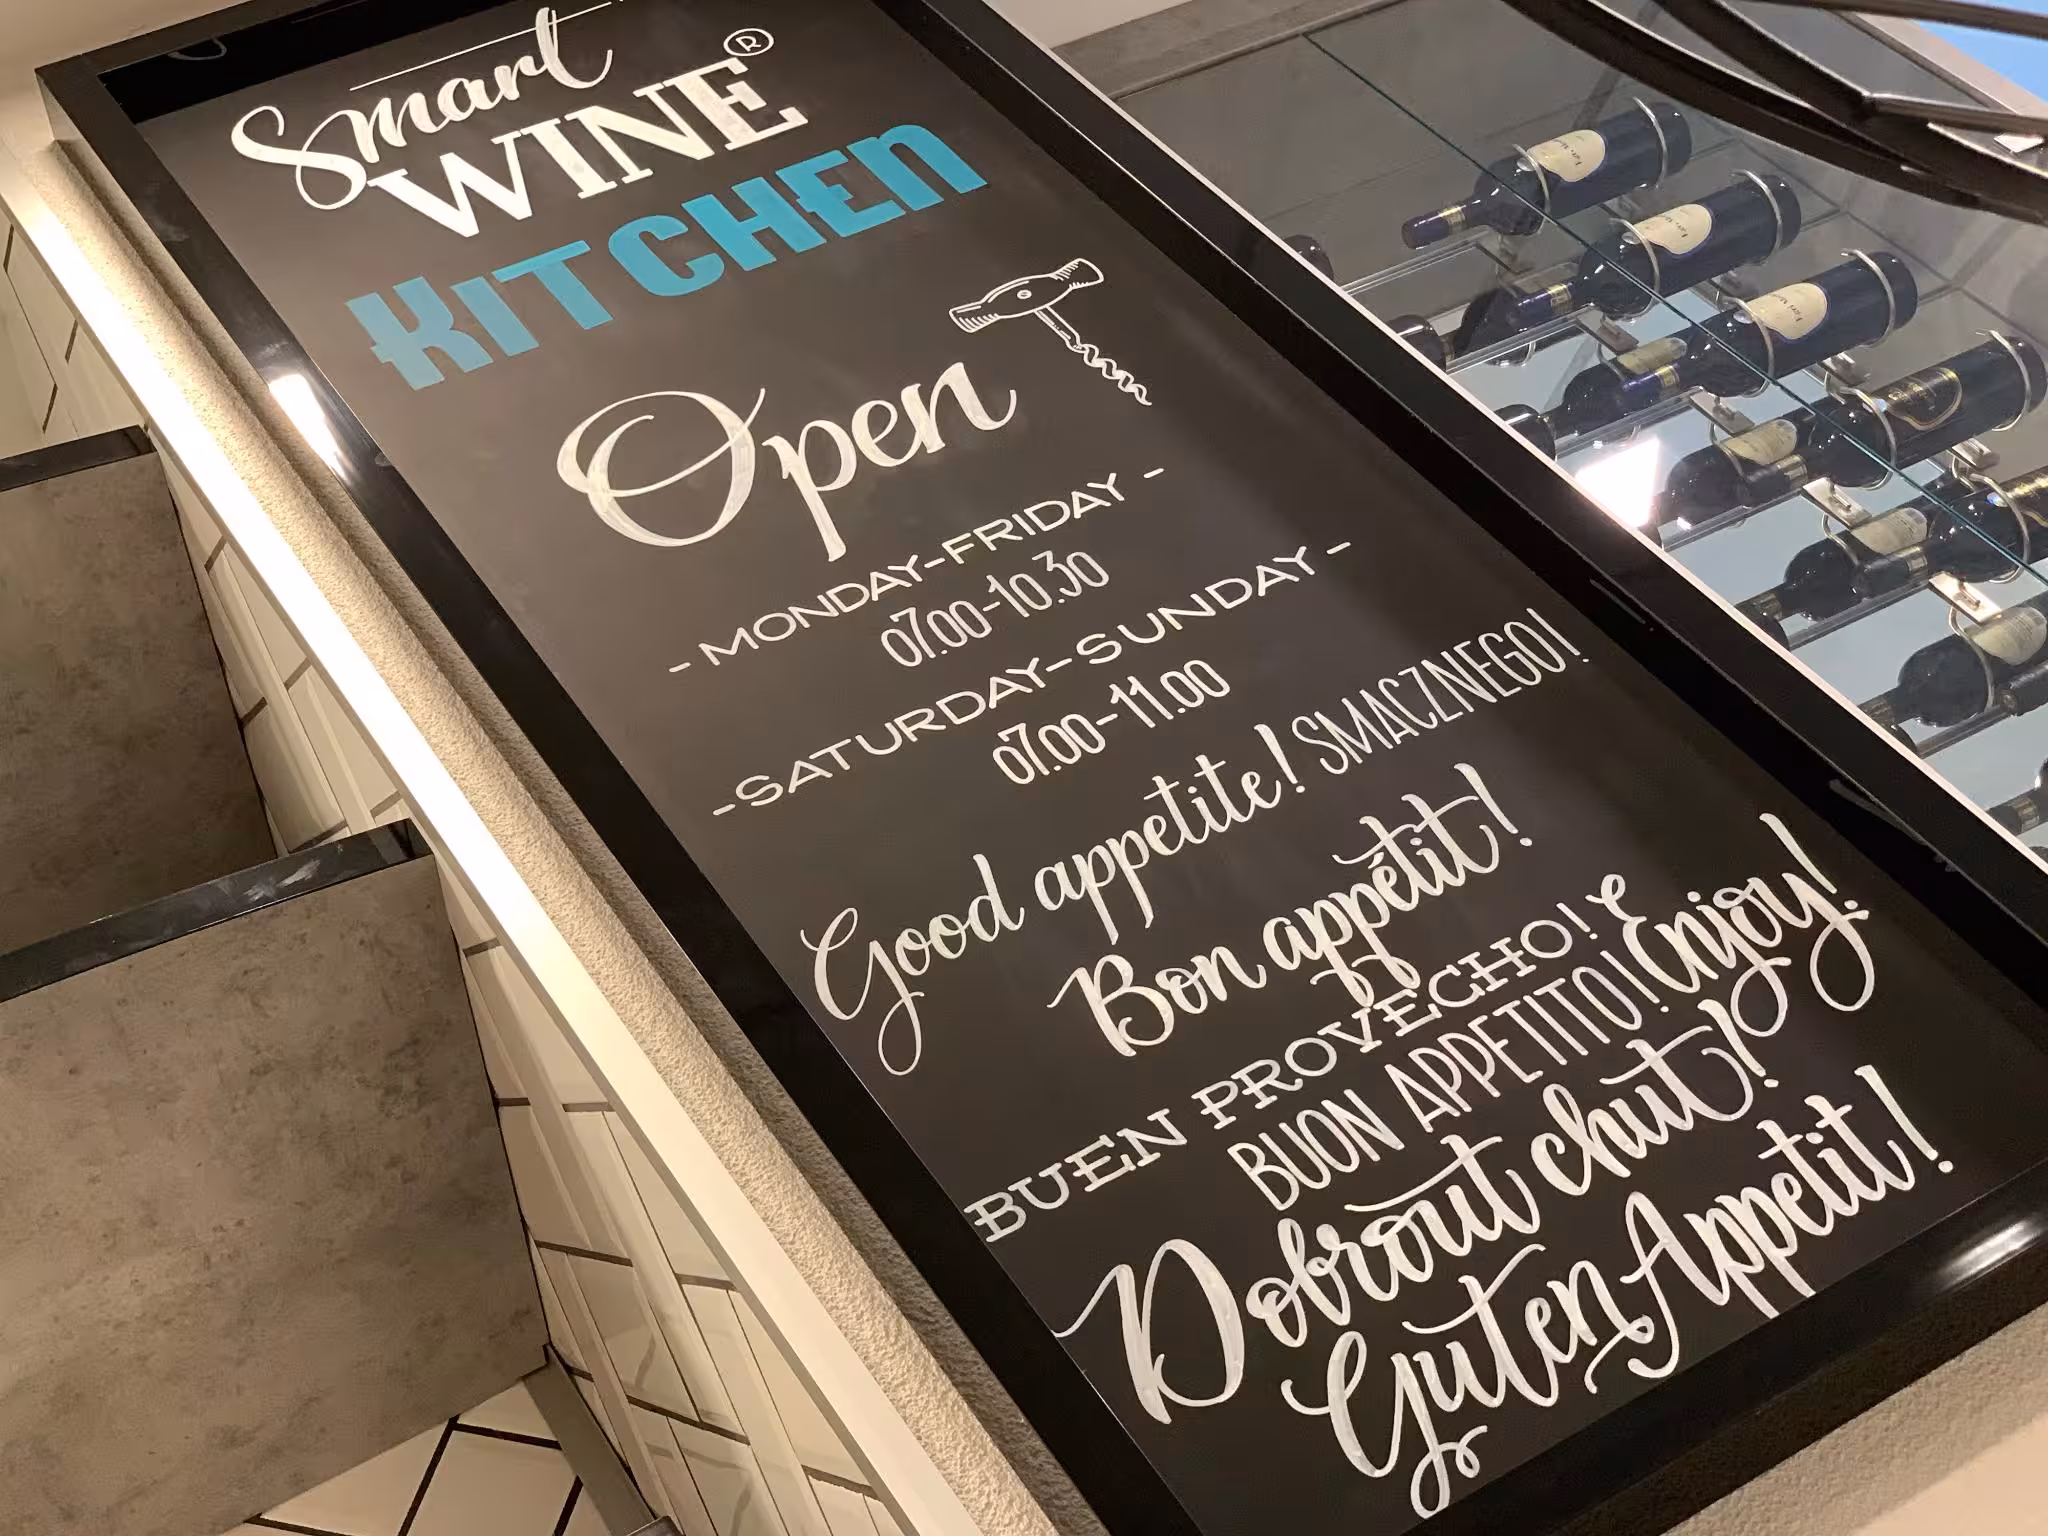 Smart
WINE®
KITCHEN
Open
- MONDAY-FRIDAY -
07.00-10.30
-SATURDAY-SUNDAY-
07.00-11.00
Good appetite! SMACZNEGO!
Bon appétit!
BUEN PROVECHO!
BUON APPETITO! Enjoy!
Dobrout chut!
Guten Appetit!